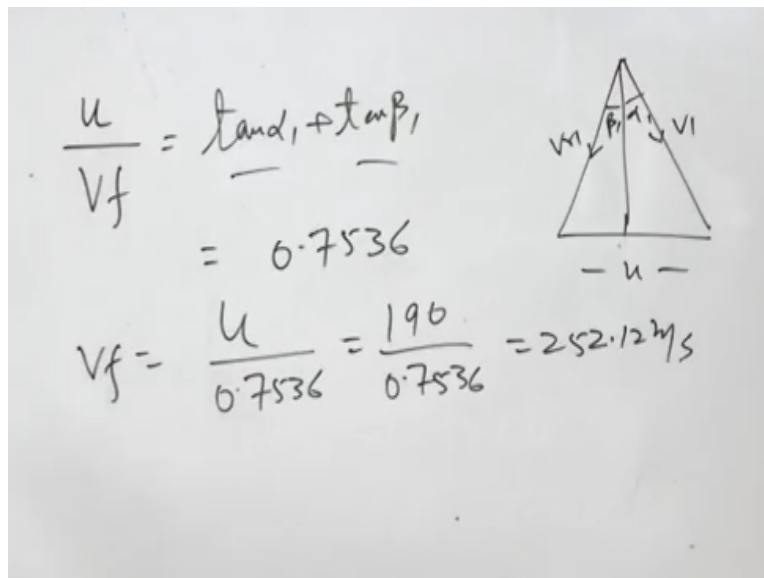 u/Vf = tanα₁ + tanβ₁
= 0.7536
Vf = u/0.7536 = 190/0.7536 = 252.12 m/s
Vr1 β₁ α₁ V1
- u -